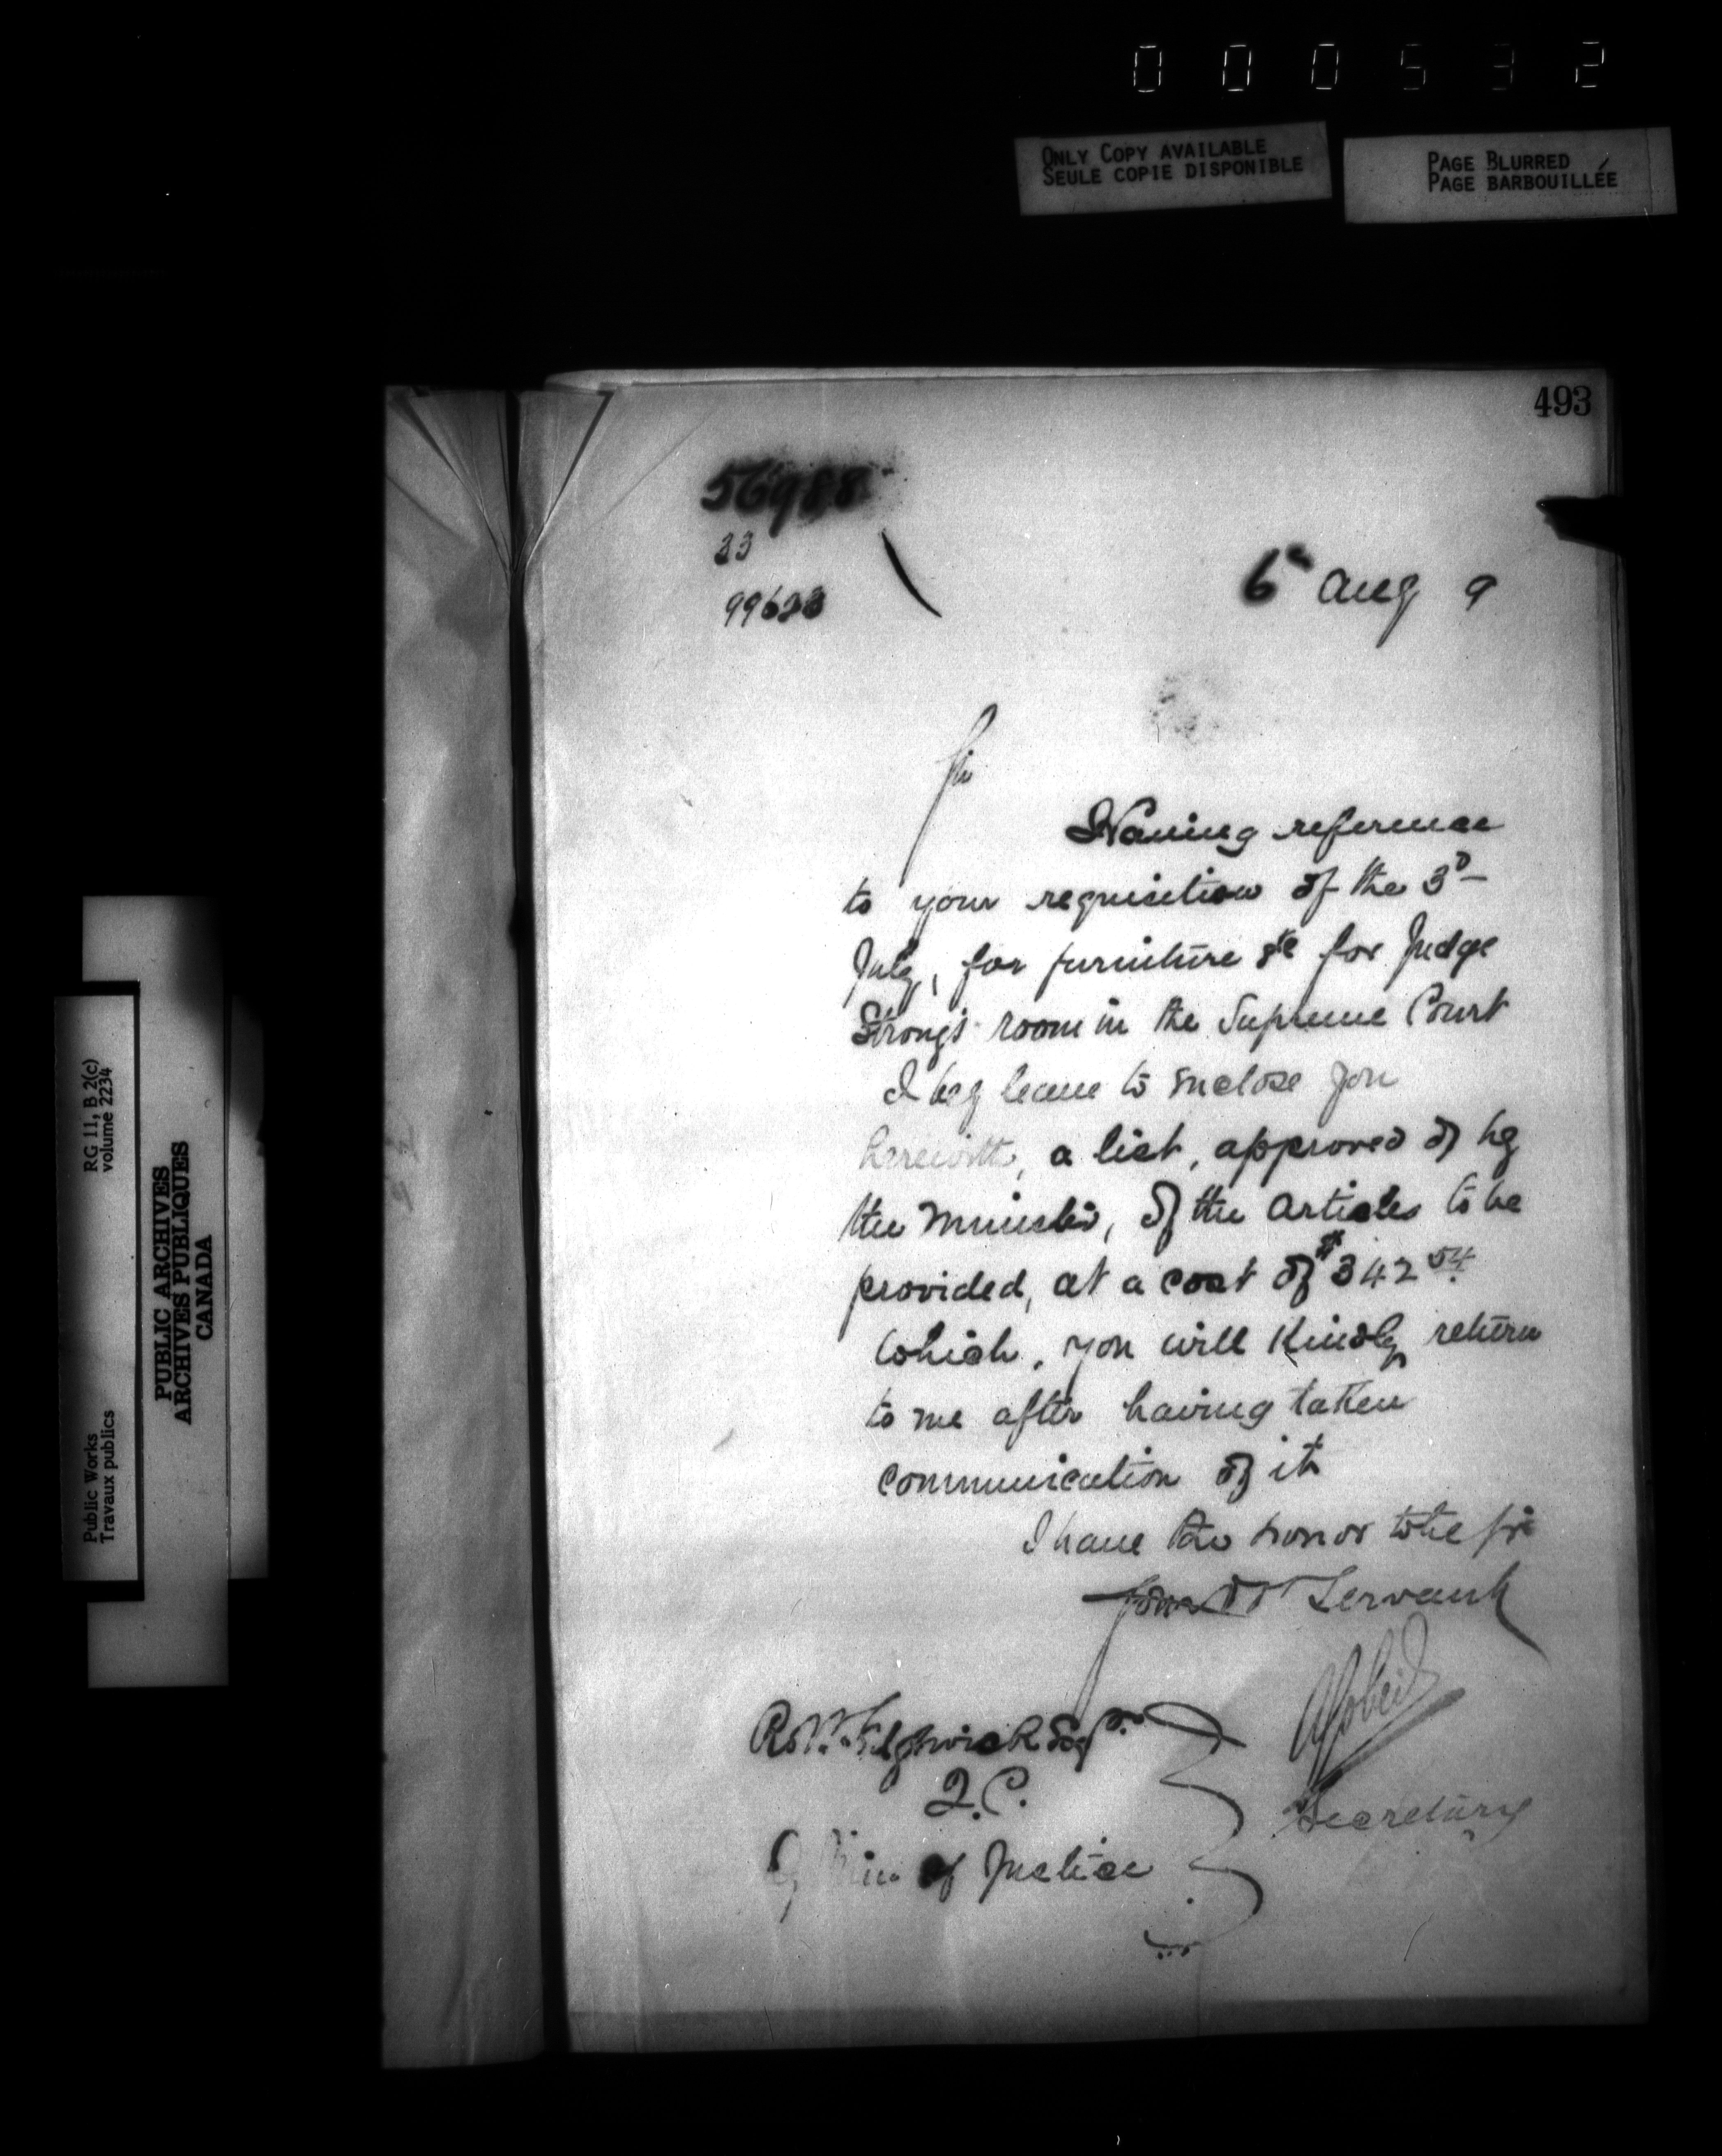 000532
ONLY COPY AVAILABLE
SEULE COPIE DISPONIBLE
PAGE BLURRED
PAGE BARBOUILLÉE
493
56988
33
6 Aug 9
Sir
Having reference
to your requisition of the 3D
July, for furniture &c for Judge
Strong's room in the Supreme Court
I beg leave to enclose you
herewith, a list, approved of by
the Minister, of the articles to be
provided, at a cost of $342 54
which, you will Kindly return
to me after having taken
communication of it
I have the honor to be Sir
Your Obt Servant
Secretary
Sedgwick Esqr
Q.C.
Min of Justice
RG 11, B 2(c)
volume 2234
Public Works
Travaux publics
PUBLIC ARCHIVES
ARCHIVES PUBLIQUES
CANADA